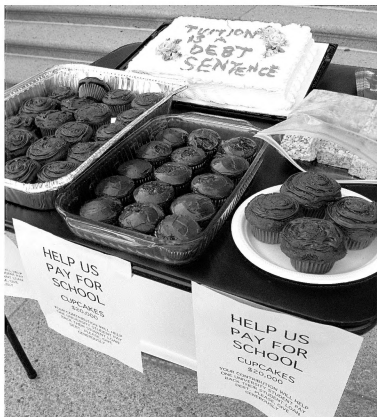 TUITION
IS A
DEBT
SENTENCE
HELP US
PAY FOR
SCHOOL
CUPCAKES
$20,000
YOUR CONTRIBUTION WILL HELP
HELP US
PAY FOR
SCHOOL
CUPCAKES
$20,000
YOUR CONTRIBUTION WILL HELP